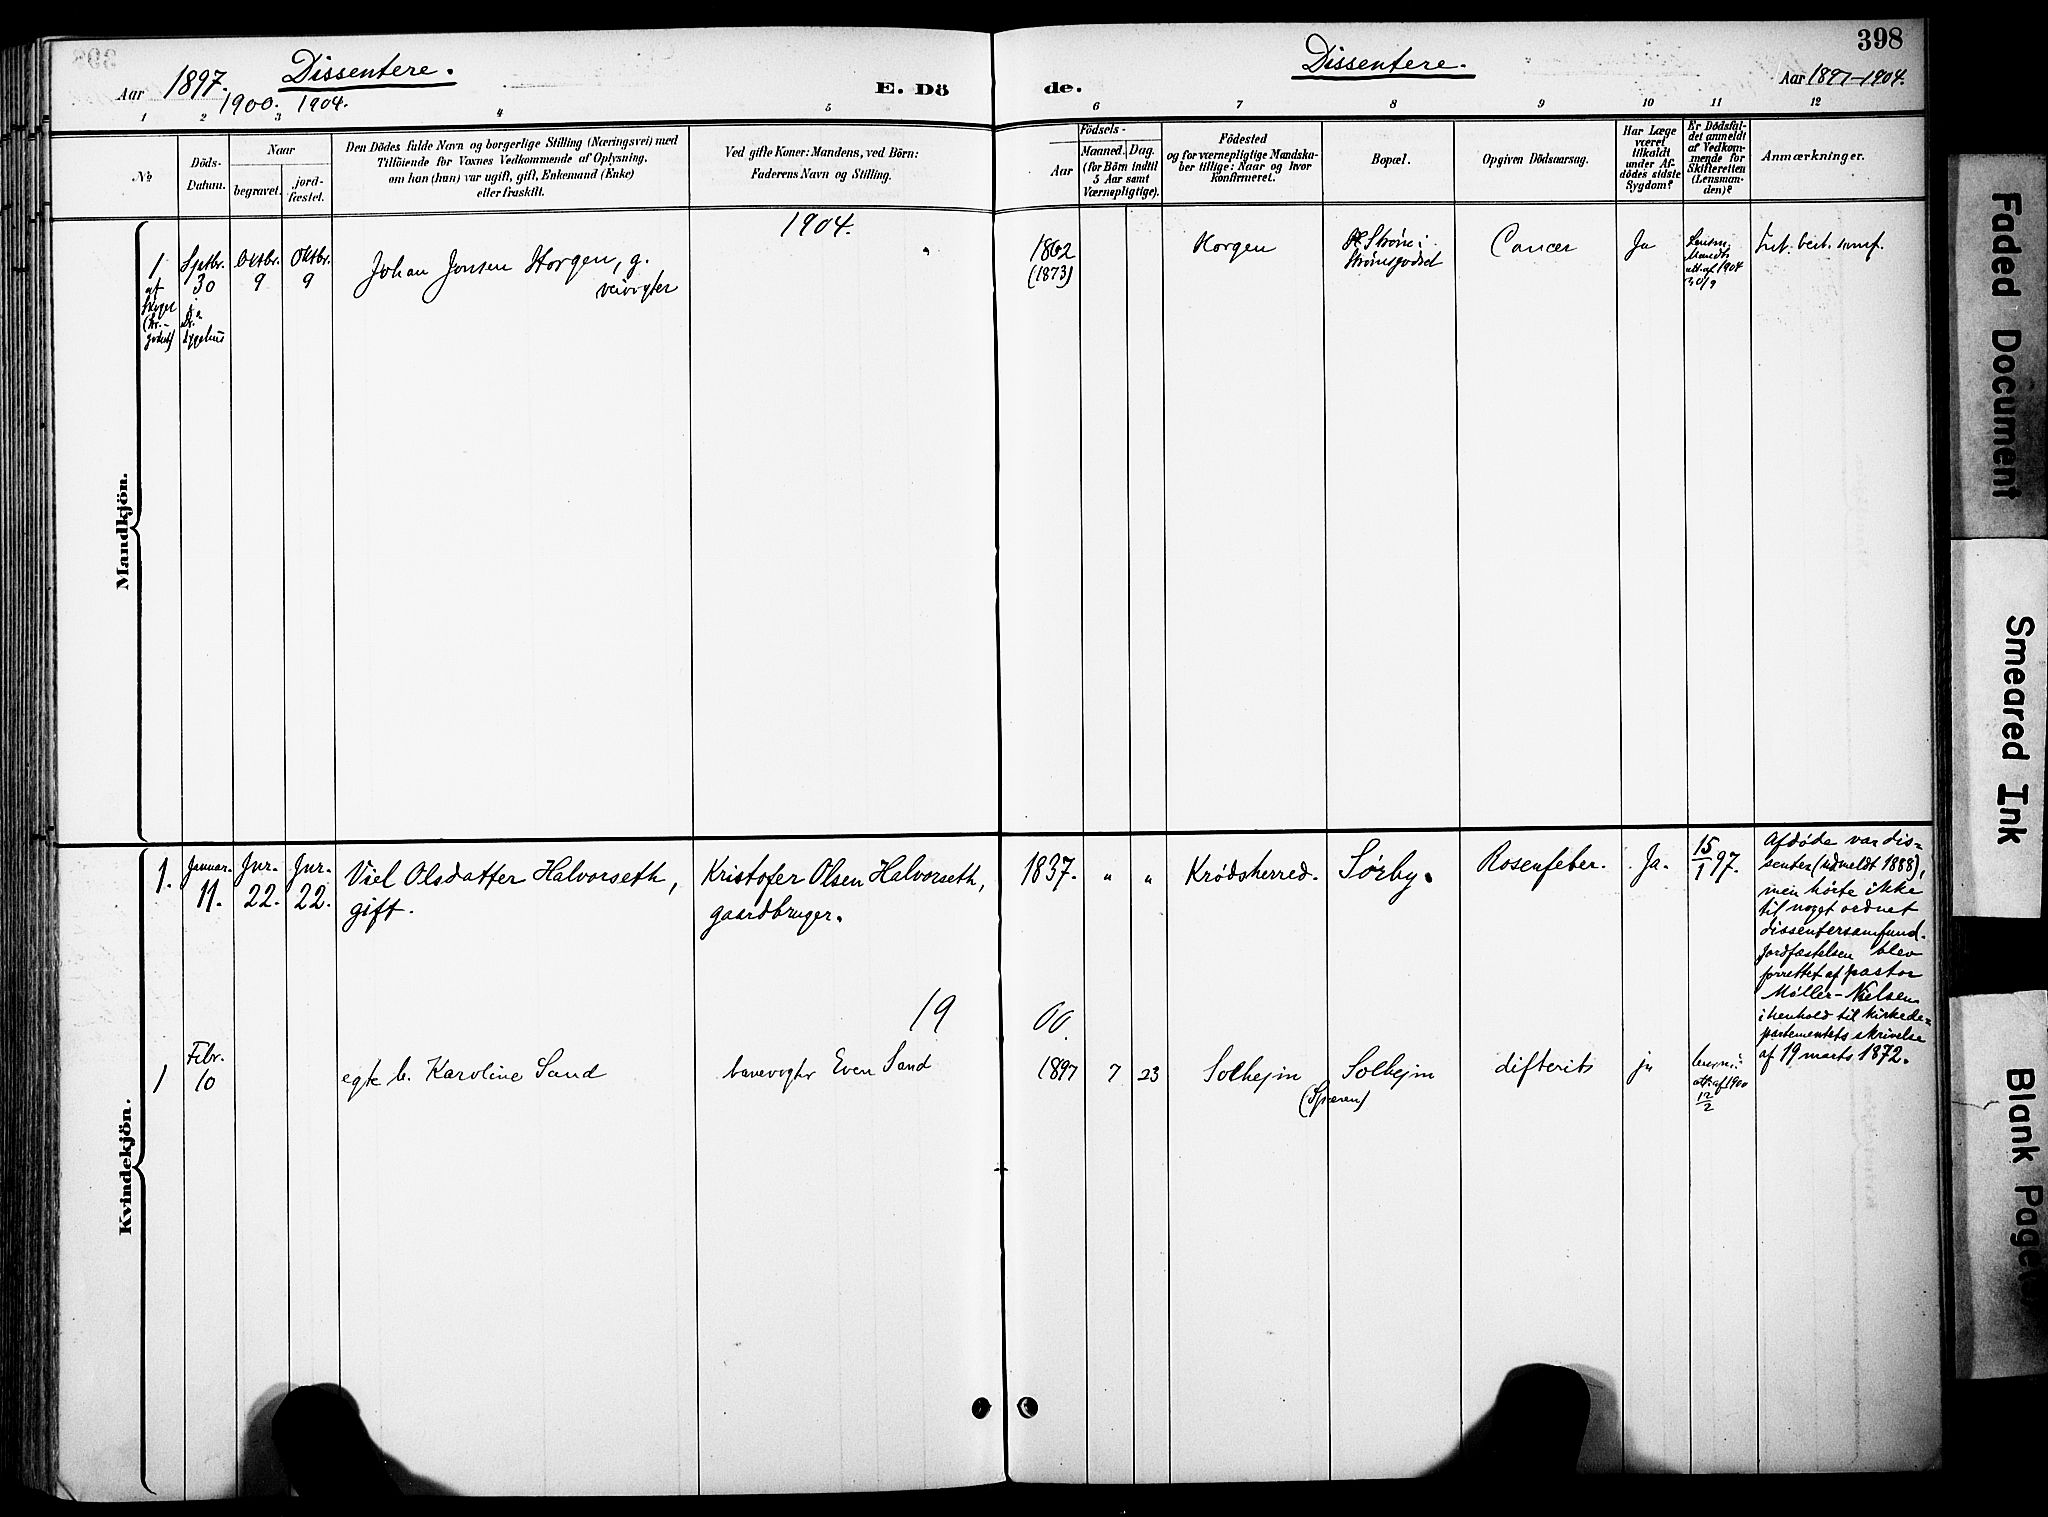 398
Dissentere.
Dissentere.
Aar 1897.
1900. 1904.
E. Dö
de.
Aar 1897–1904.
1 2 3 4 5 6 7 8 9 10 11 12
No
Döds-
Datum.
Naar
begravet.
jord-
fæstet.
Den Dödes fulde Navn og borgerlige Stilling (Næringsvei) med
Tilföiende for Voxnes Vedkommende af Oplysning,
om han (hun) var ugift, gift, Enkemand (Enke)
eller fraskilt.
Ved gifte Koner: Mandens, ved Börn:
Faderens Navn og Stilling.
Födsels-
Aar
Maaned. Dag.
(for Börn indtil
5 Aar samt
Værnepligtige).
Födested
og for værnepligtige Mandska-
ber tillige: Naar og hvor
konfirmeret.
Bopæl.
Opgiven Dödsaarsag.
Har Læge
været
tilkaldt
under Af-
dödes sidste
Sygdom?
Er Dödsfal-
det anmeldt
af Vedkom-
mende for
Skifteretten
(Lensman-
den)?
Anmærkninger.
1904.
Mandkjön.
1
af
Sptbr.
30
Oktbr.
9
Oktbr.
9
Johan Jonsen Horgen, g.
veivogter
"
1862
(1873)
Horgen
Strøm i
Strømsgodset
Cancer
Ja
Lensm.
att. af 1904
30/9
Kvindekjön.
1.
Januar.
11.
Jnr.
22.
Jnr.
22.
Viel Olsdatter Halvorseth,
gift.
Kristofer Olsen Halvorseth,
gaardbruger.
1837.
"
"
Krødsherred.
Sørby.
Rosenfeber.
Ja.
15/1 97.
Afdøde var dis-
senter (udmeldt 1888),
men hørte ikke
til noget ordnet
dissentersamfund.
Jordfæstelsen blev
forrettet af pastor
Møller-Nielsen
i henhold til kirkede-
partementets skrivelse
af 19 marts 1872.
19
00.
1
Febr.
10
egte b. Karoline Sand
banevogter Even Sand
1897
7
23
Solhejm
(Spæren)
Solhejm
difterits
ja
lensm:
att. af 1900
12/2
Faded Document
Smeared Ink
Blank Page